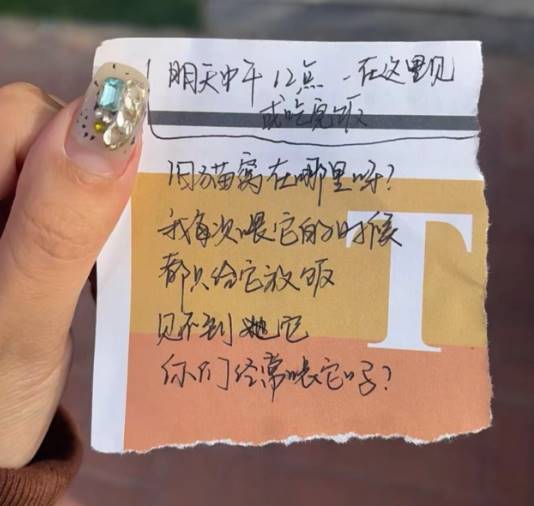 明天中午12点 在这里见
或吃完饭
因猫窝在哪里呀?
我每次喂它的时候
都只给它放饭
见不到她它
你们经常喂它吗?
T